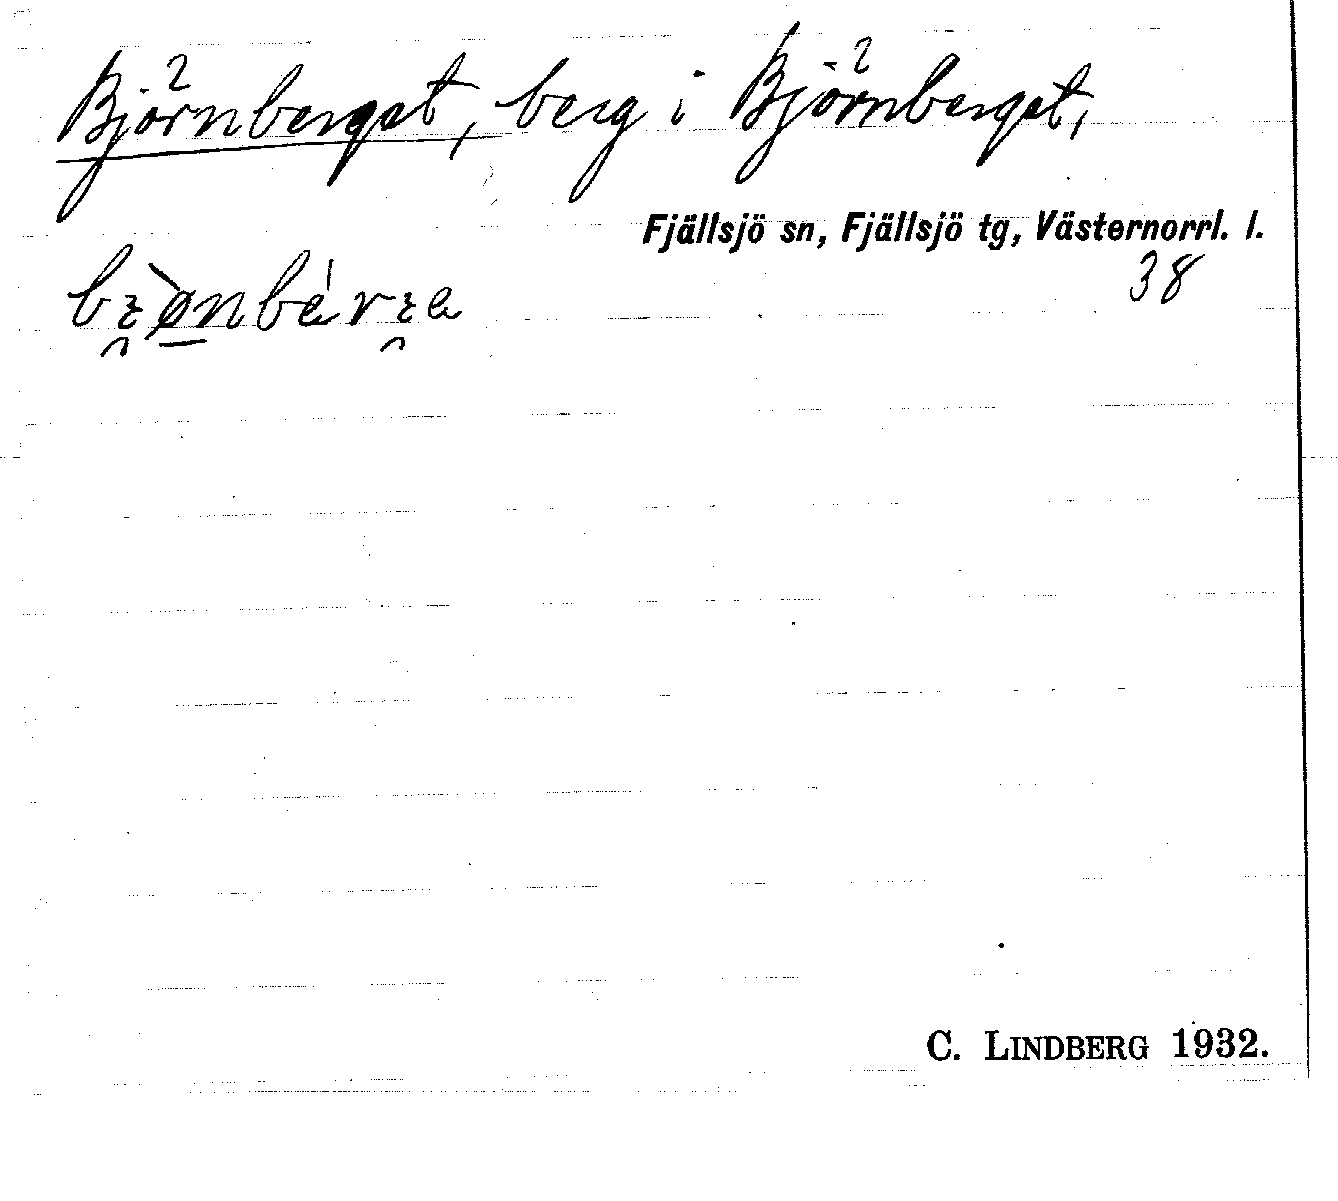 Björnberget, berg i Björnberget,
Fjällsjö sn, Fjällsjö tg, Västernorrl. l.
38
C. LINDBERG 1932.